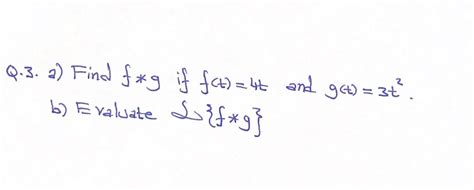 Q.3. a) Find f*g if f(t) = 4t and g(t) = 3t².
b) Evaluate ℒ{f*g}